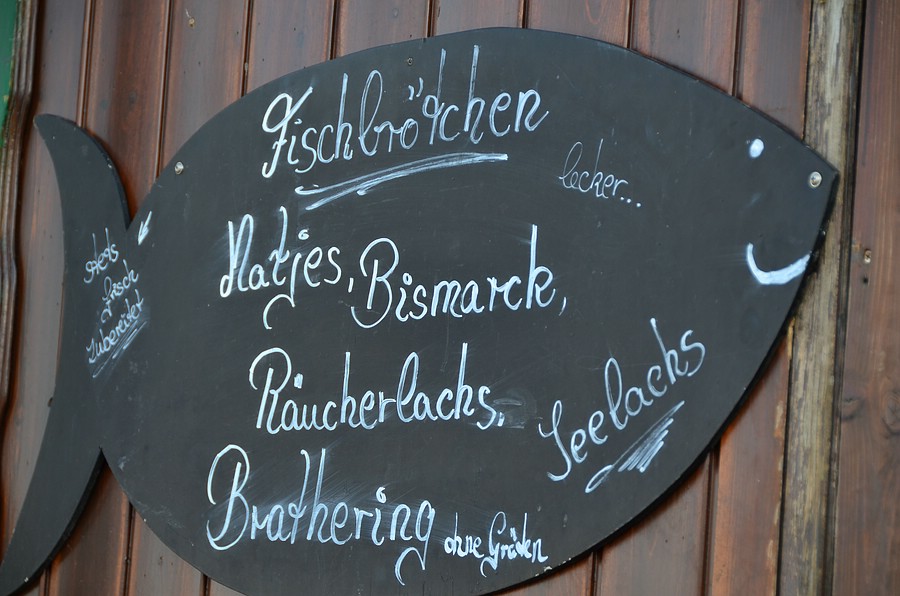 Fischbrötchen
lecker...
stets
frisch
zubereitet
Matjes, Bismarck,
Räucherlachs,
Seelachs
Brathering ohne Gräten